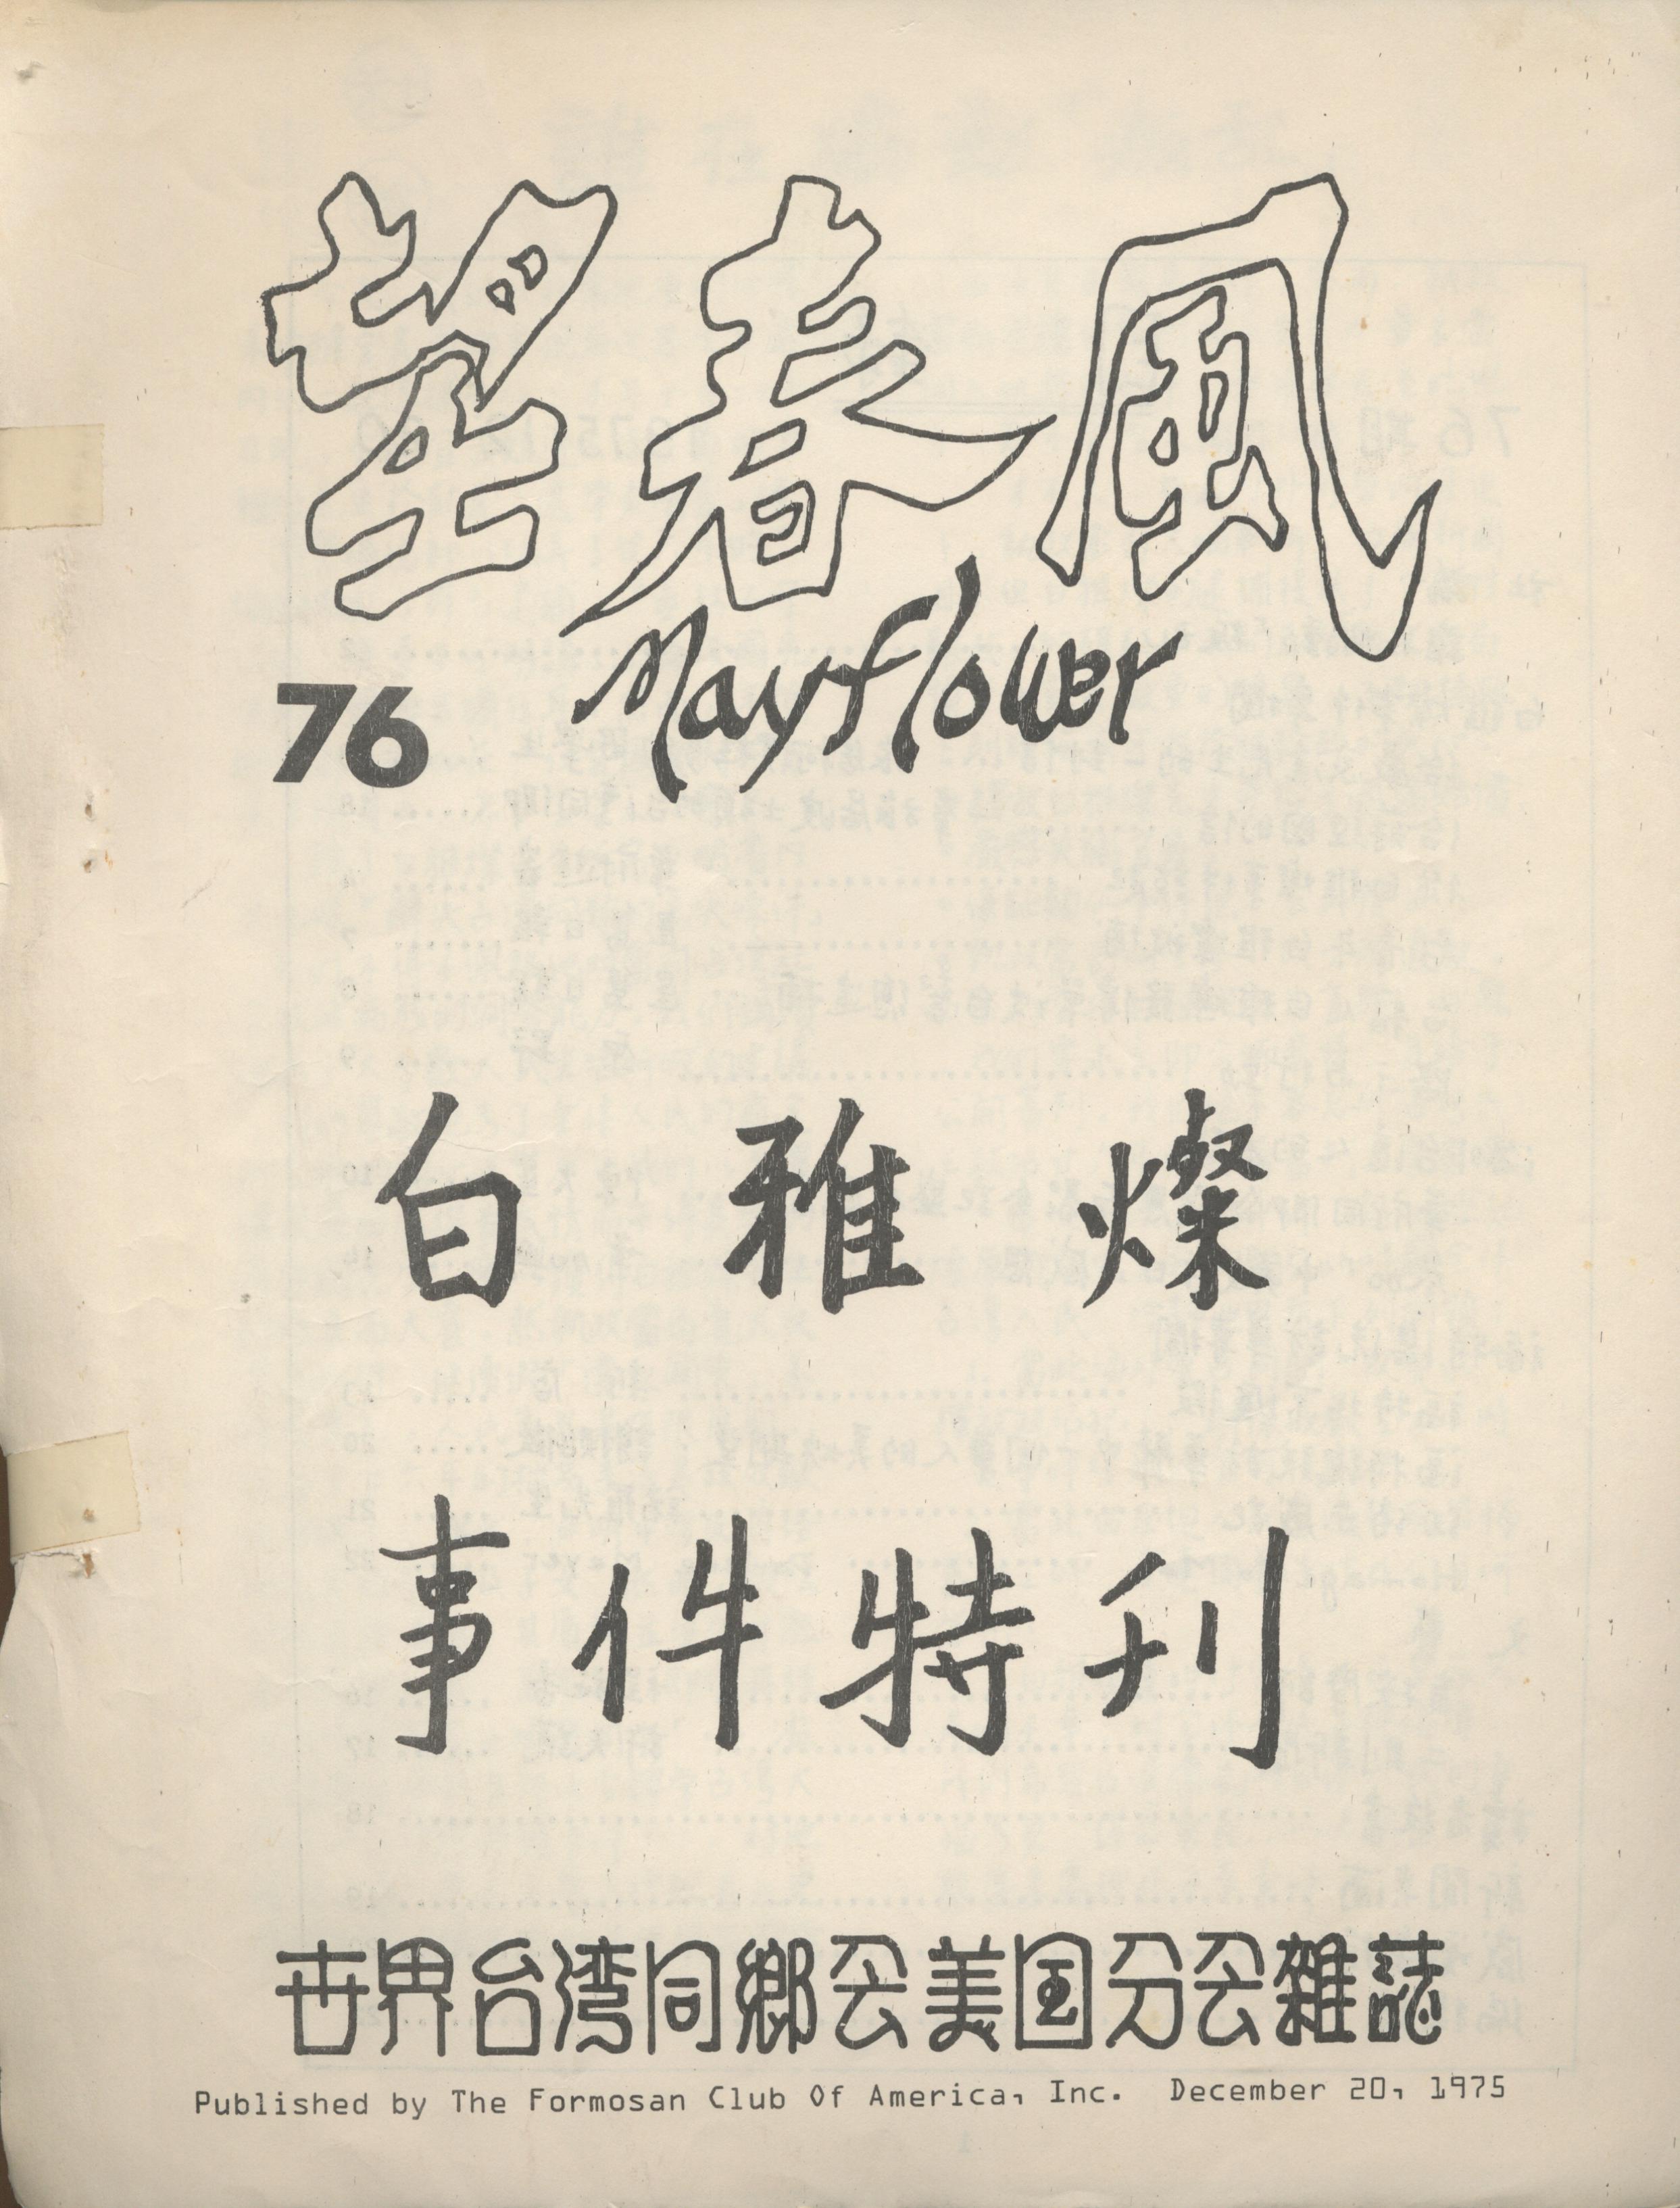 望春風
Mayflower
76
白雅燦
事件特刊
世界台湾同鄉会美国分会雜誌
Published by The Formosan Club Of America, Inc. December 20, 1975